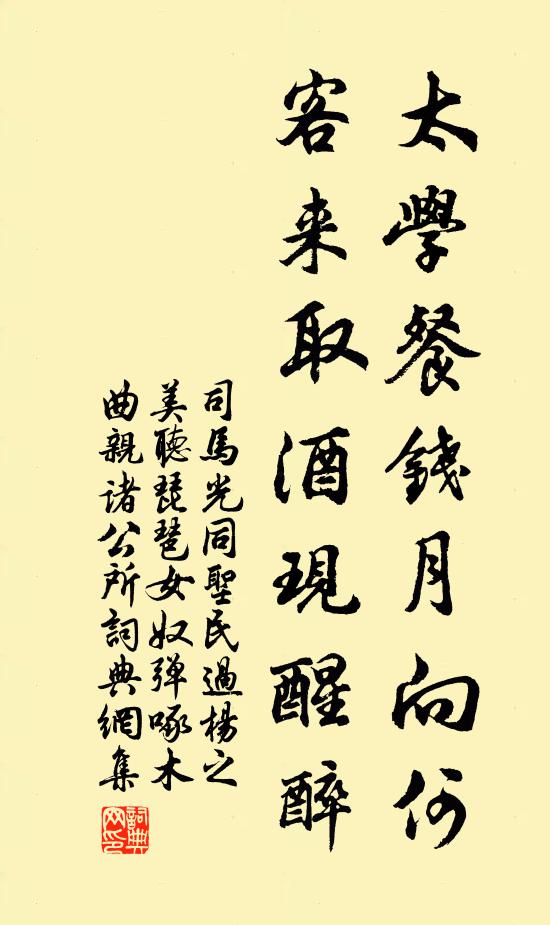 太學餐錢月向何
客来取酒現醒醉
司馬光同聖民過楊之
美聽琵琶女奴弹啄木
曲親诸公所詞典網集
詞典
网印